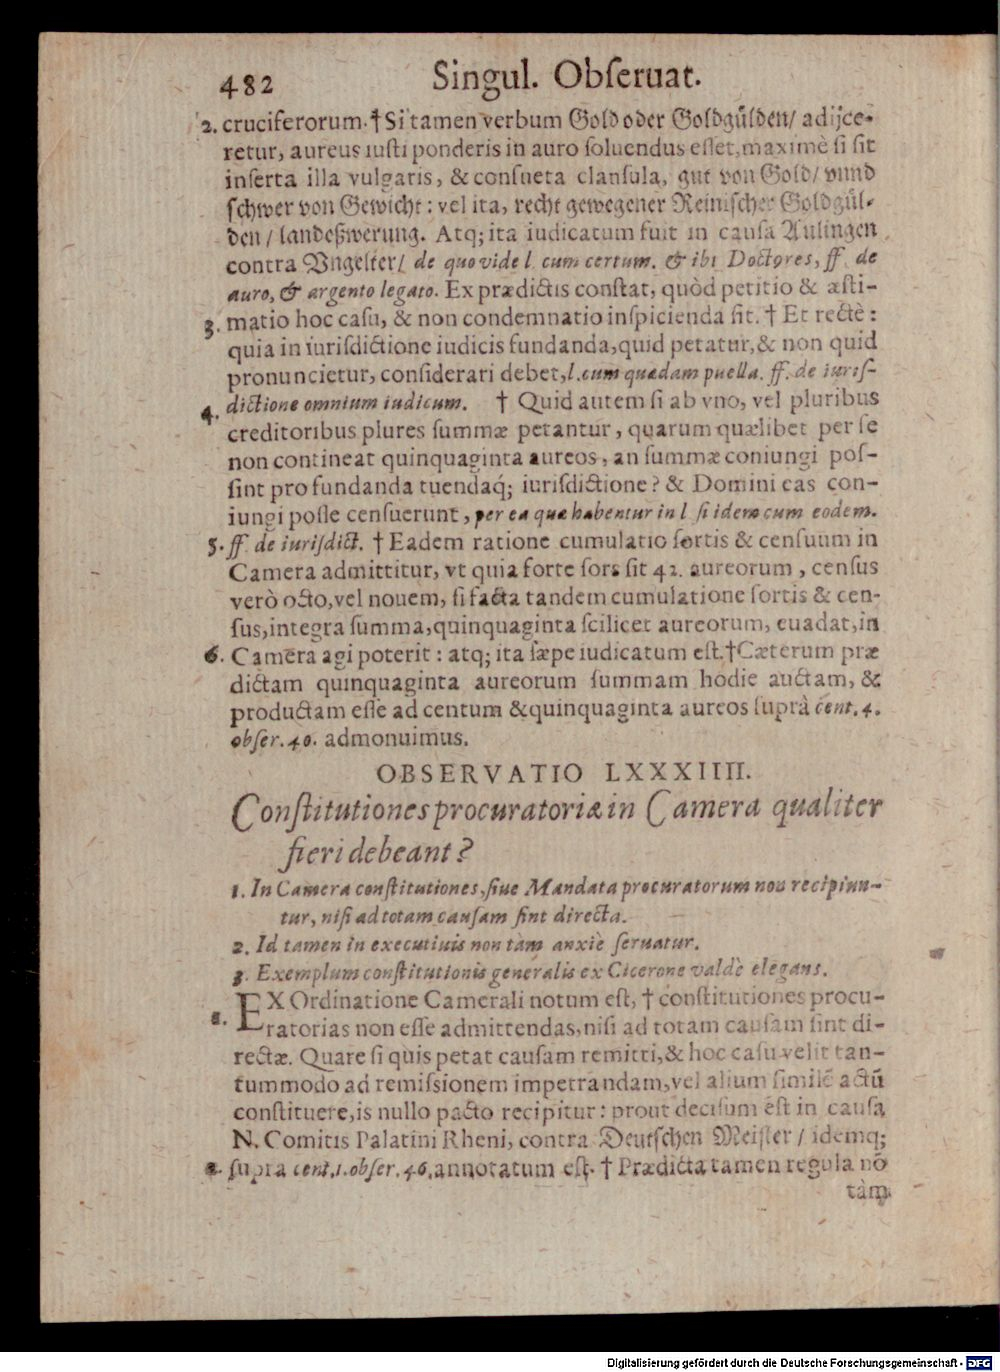 482 Singul. Obſeruat.
2. cruciferorum. † Si tamen verbum Gold oder Goldgülden/ adijce-
retur, aureus iusti ponderis in auro ſoluendus eſſet, maximè ſi ſit
inſerta illa vulgaris, & conſueta clauſula, gut von Gold/ vnnd
ſchwer von Gewicht: vel ita, recht gewegener Reiniſcher Goldgül-
den/ landeßwerung. Atq; ita iudicatum fuit in cauſa Aulingen
contra Vngelter/ de quo vide l. cum certum. & ibi Doctores, ff. de
auro, & argento legato. Ex prædictis conſtat, quòd petitio & æſti-
3. matio hoc caſu, & non condemnatio inſpicienda ſit. † Et rectè:
quia in iuriſdictione iudicis fundanda, quid petatur, & non quid
pronuncietur, conſiderari debet, l. cum quædam puella. ff. de iuriſ-
4. dictione omnium iudicum. † Quid autem ſi ab vno, vel pluribus
creditoribus plures ſummæ petantur, quarum quælibet per ſe
non contineat quinquaginta aureos, an ſummæ coniungi poſ-
ſint pro fundanda tuendaq́; iuriſdictione? & Domini eas con-
iungi poſſe cenſuerunt, per ea quæ habentur in l. ſi idem cum eodem.
5. ff. de iuriſdict. † Eadem ratione cumulatio ſortis & cenſuum in
Camera admittitur, vt quia forte ſors ſit 42. aureorum, cenſus
verò octo, vel nouem, ſi facta tandem cumulatione ſortis & cen-
ſus, integra ſumma, quinquaginta ſcilicet aureorum, euadat, in
6. Camera agi poterit: atq; ita ſæpe iudicatum eſt. † Cæterum præ
dictam quinquaginta aureorum ſummam hodie auctam, &
productam eſſe ad centum & quinquaginta aureos ſuprà cent. 4.
obſer. 40. admonuimus.
OBSERVATIO LXXXIIII.
Conſtitutiones procuratoriæ in Camera qualiter
fieri debeant?
1. In Camera conſtitutiones, ſiue Mandata procuratorum non recipiun-
tur, niſi ad totam cauſam ſint directa.
2. Id tamen in executiuis non tàm anxiè ſeruatur.
3. Exemplum conſtitutionis generalis ex Cicerone valdè elegans.
EX Ordinatione Camerali notum eſt, † conſtitutiones procu-
1. ratorias non eſſe admittendas, niſi ad totam cauſam ſint di-
rectæ. Quare ſi quis petat cauſam remitti, & hoc caſu velit tan-
tummodo ad remiſsionem impetrandam, vel alium ſimilẽ actũ
conſtituere, is nullo pacto recipitur: prout deciſum eſt in cauſa
N. Comitis Palatini Rheni, contra Deutſchen Meiſter/ idemq;
2. ſupra cent. 1. obſer. 46. annotatum eſt. † Prædicta tamen regula nõ
tàm
Digitalisierung gefördert durch die Deutsche Forschungsgemeinschaft - DFG